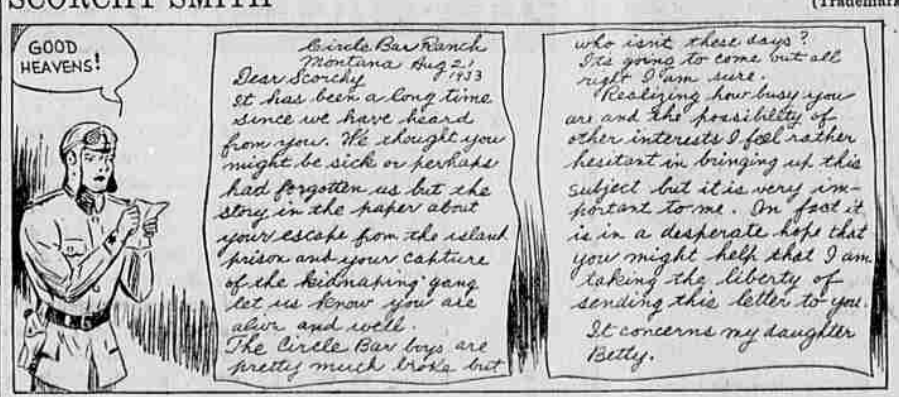 SCORCHY SMITH
(Trademark
GOOD
HEAVENS!
Circle Bar Ranch
Montana Aug 21
1933
Dear Scorchy
It has been a long time
since we have heard
from you. We thought you
might be sick or perhaps
had forgotten us but the
story in the paper about
your escape from the island
prison and your capture
of the kidnaping gang
let us know you are
alive and well.
The Circle Bar boys are
pretty much broke but
who isn't these days?
Its going to come out all
right I am sure.
Realizing how busy you
are and the possibility of
other interests I feel rather
hesitant in bringing up this
subject but it is very im-
portant to me. In fact it
is in a desperate hope that
you might help that I am
taking the liberty of
sending this letter to you.
It concerns my daughter
Betty.